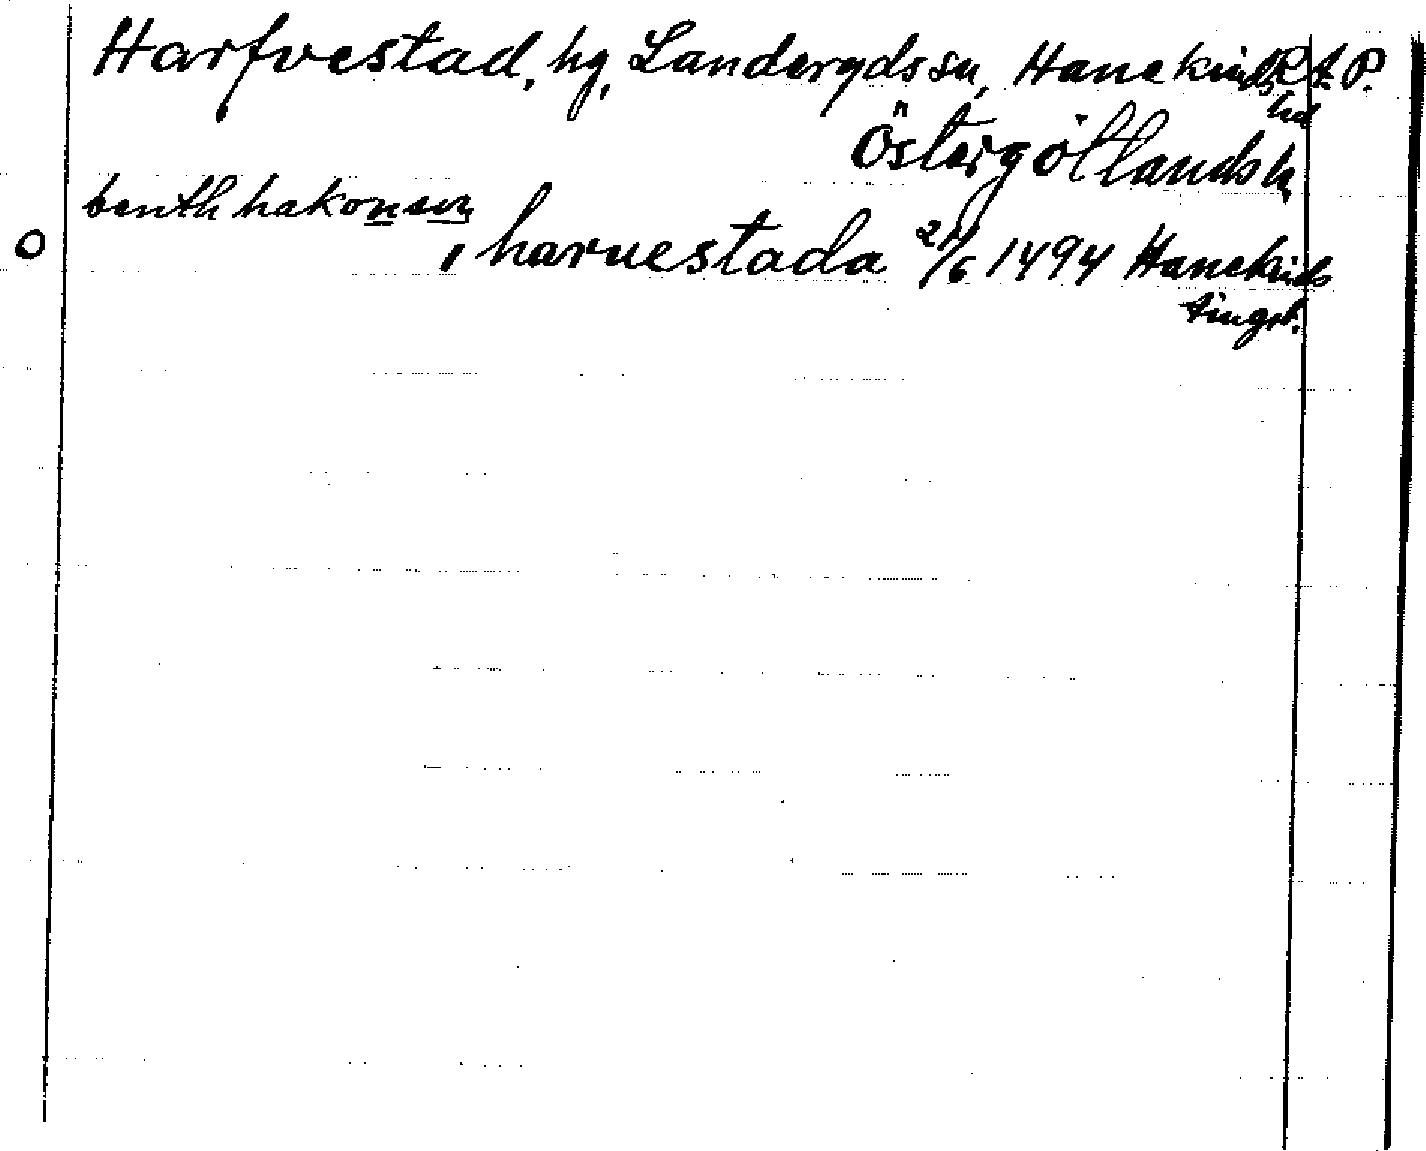 Harfvestad, hg, Landerydssn, Hanekinds R A P.
hd
Östergötlands l.
benth hakonson
O , haruestada 21/6 1494 Hanekinds
tingst.